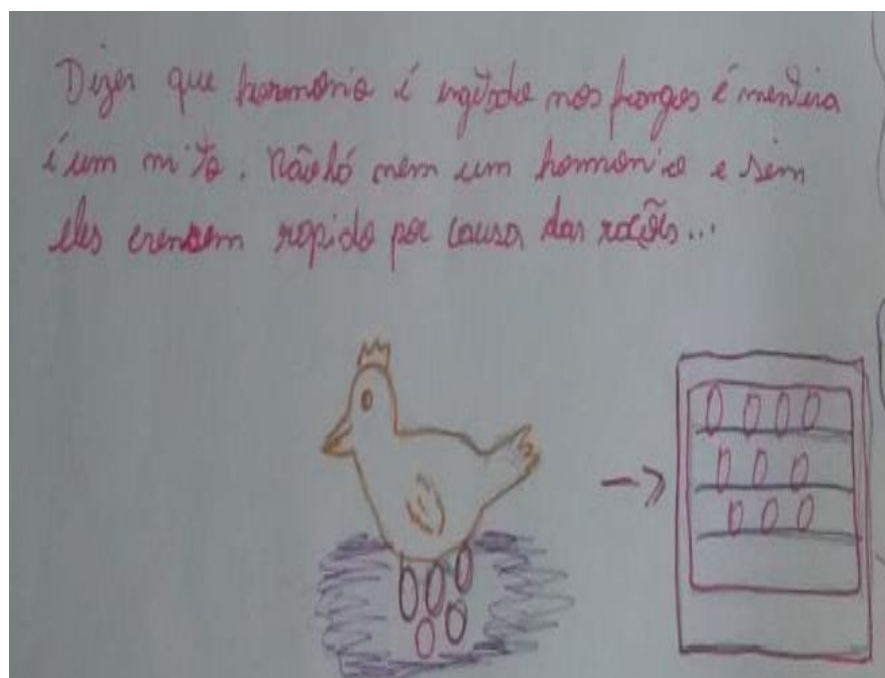 Dizer que hormonio é ingetado nos frangos é mentira
é um mito. Não há nem um hormonio e sim
eles crensem rapido por causa das rações...